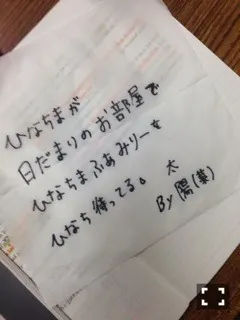 ひなちまが
日だまりのお部屋で
ひなちまふぁみりーを
ひなち待ってる。
太
By 陽(葵)